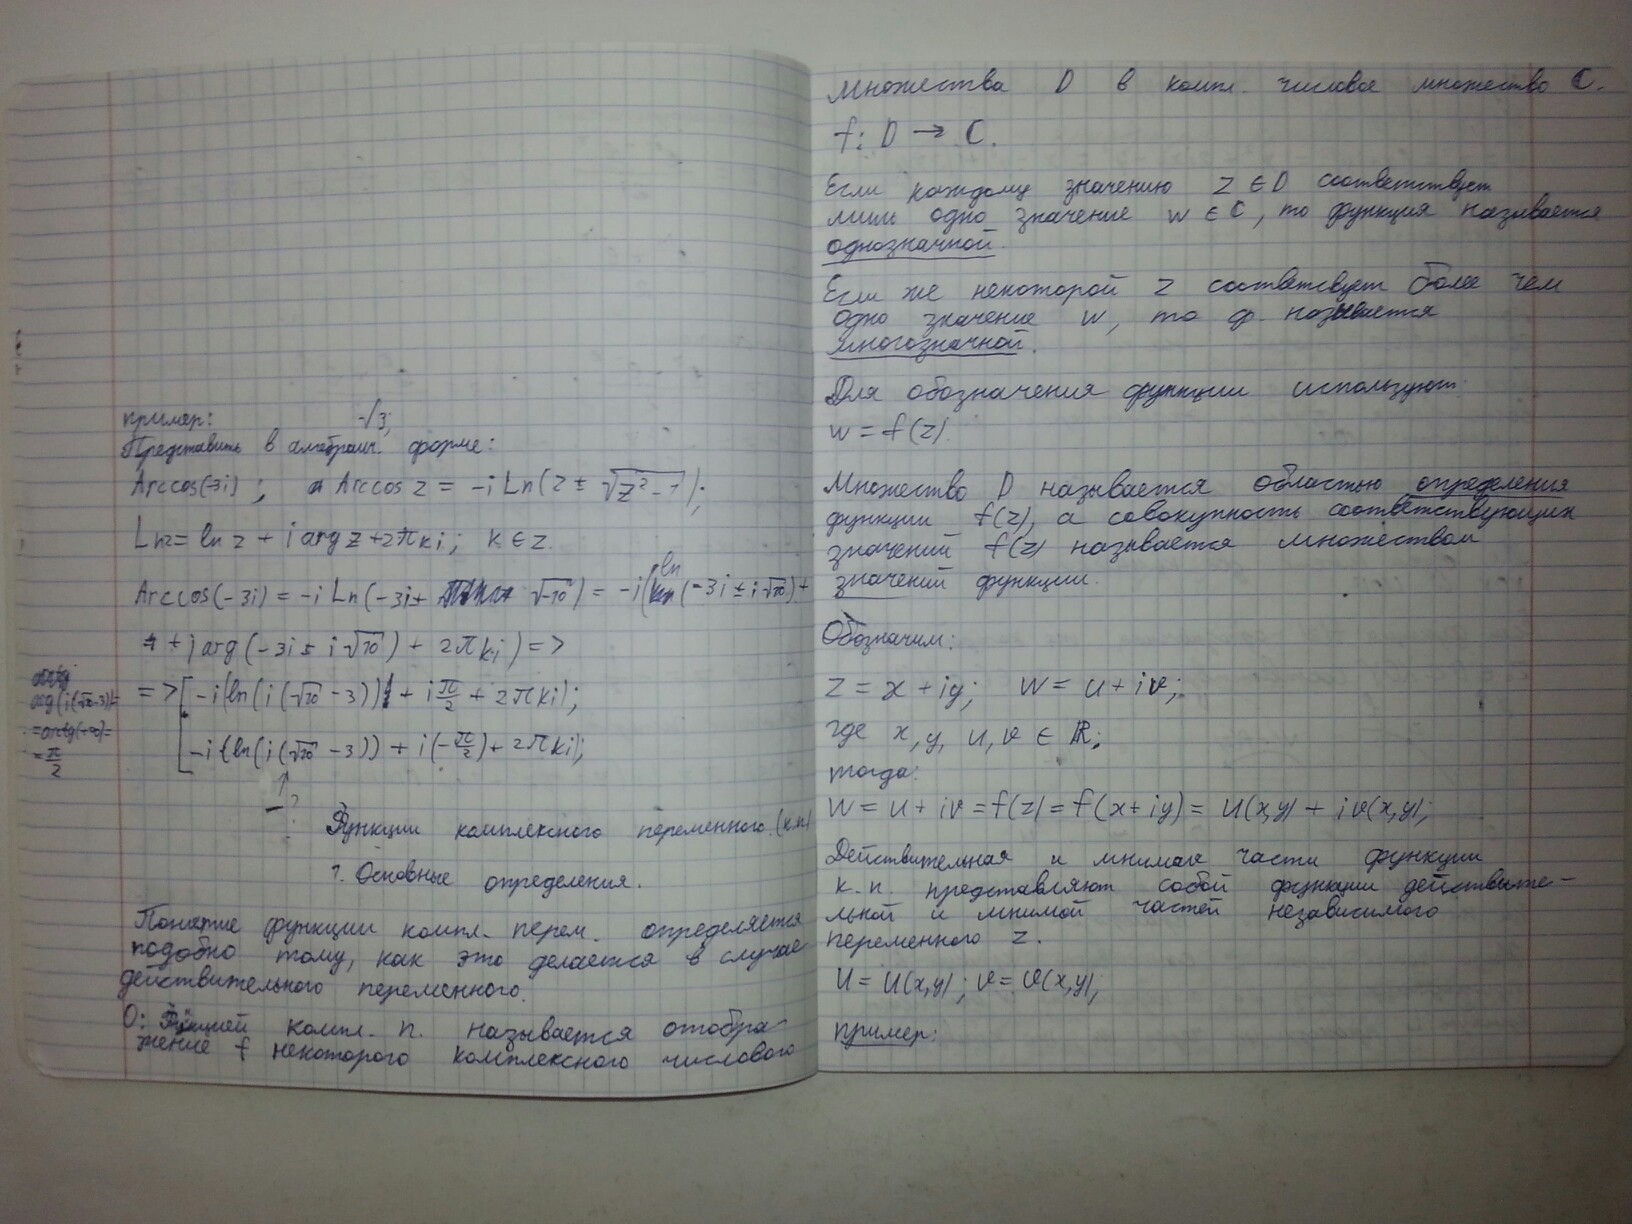 пример: -√3;
Представить в алгебраич. форме:
Arccos(-3i); Arccos z = -i Ln(z ± √(z²-1));
Lnz = ln z + i arg z + 2πki; k ∈ z.
Arccos(-3i) = -i Ln(-3i ± √-10) = -i(ln(-3i ± i√10) +
+ i arg(-3i ± i√10) + 2πki) =>
=> [ -i(ln(i(√10 - 3)) + i π/2 + 2πki);
[ -i(ln(i(√10 - 3)) + i(-π/2) + 2πki);
arg(i(√10-3))=
=arctg(+∞)=
=π/2
↑
- ?
Функции комплексного переменного. (к.п.)
1. Основные определения.
Понятие функции компл. перем. определяется
подобно тому, как это делается в случае
действительного переменного.
О: Функцией компл. п. называется отобра-
жение f некоторого комплексного числового
множества D в компл. числовое множество C.
f: D → C.
Если каждому значению z ∈ D соответствует
лишь одно значение w ∈ C, то функция называется
однозначной.
Если же некоторой z соответсвует более чем
одно значение w, то ф. называется
многозначной.
Для обозначения функции используют:
w = f(z).
Множество D называется областью определения
функции f(z), а совокупность соответствующих
значений f(z) называется множеством
значений функции.
Обозначим:
z = x + iy; w = u + iv;
где x, y, u, v ∈ ℝ;
тогда:
w = u + iv = f(z) = f(x + iy) = u(x,y) + iv(x,y);
Действительная и мнимая части функции
к. п. представляют собой функции действите-
льной и мнимой частей независимого
переменного z.
u = u(x,y); v = v(x,y);
пример: